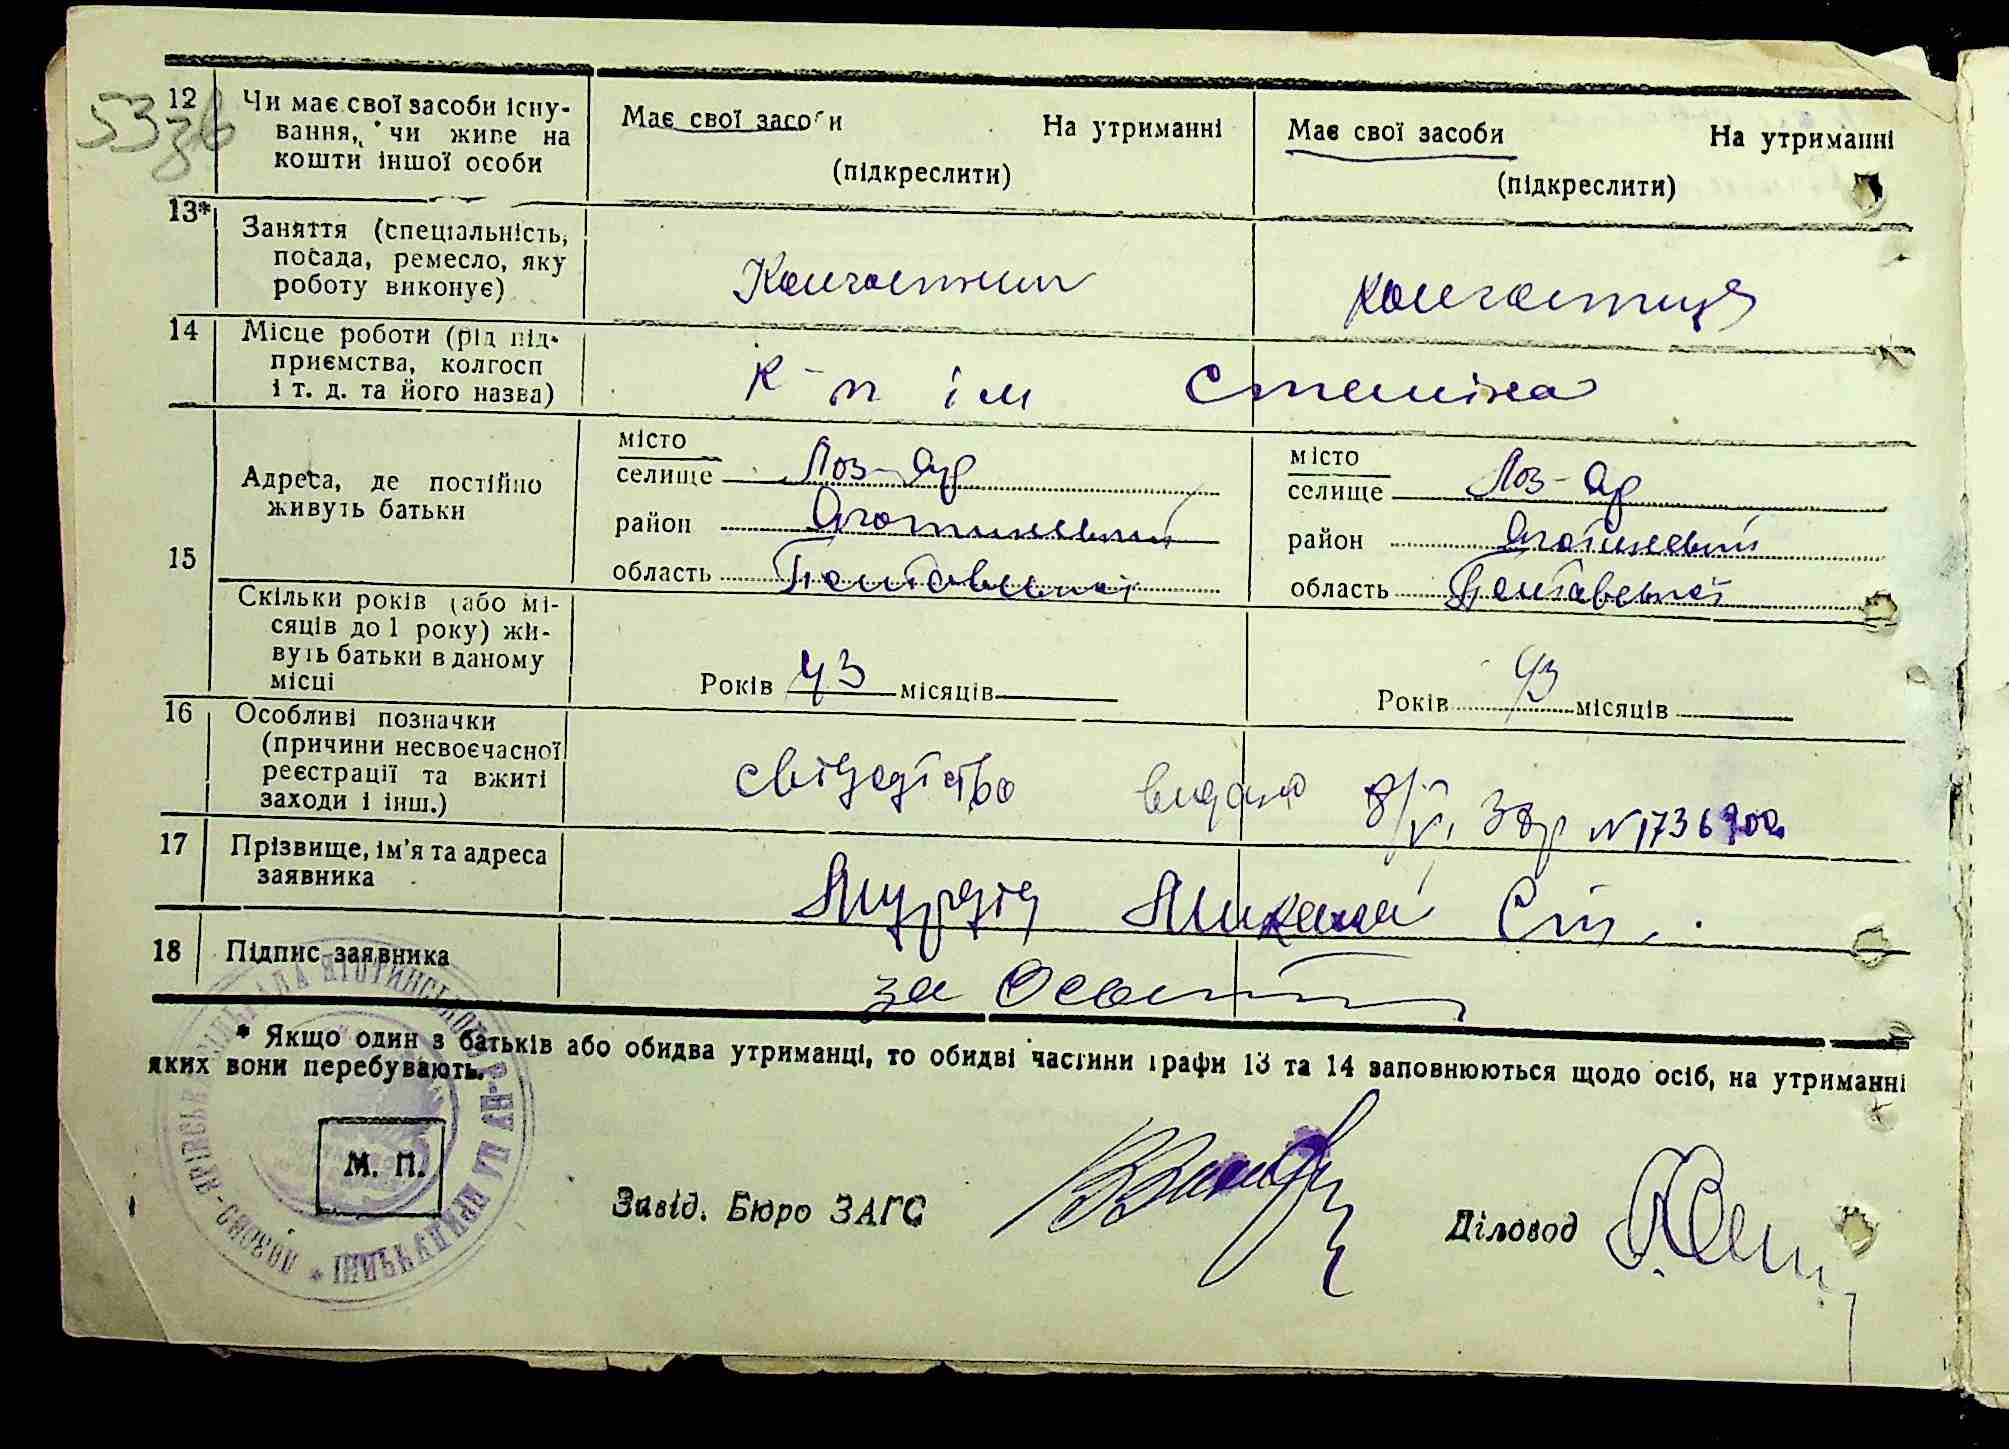 53зв
12 Чи має свої засоби існу-
вання, чи живе на
кошти іншої особи
Має свої засоби На утриманні
(підкреслити)
Має свої засоби На утриманні
(підкреслити)
13*
Заняття (спеціальність,
посада, ремесло, яку
роботу виконує)
Колгоспник
колгоспниця
14 Місце роботи (рід під-
приємства, колгосп
і т. д. та його назва)
к-п ім Сталіна
15
Адреса, де постійно
живуть батьки
місто
селище Лоз-Яр
район Яготинський
область Полтавської
місто
селище Лоз-Яр
район Яготинський
область Полтавської
Скільки років (або мі-
сяців до 1 року) жи-
вуть батьки в даному
місці
Років 43 місяців
Років 43 місяців
16 Особливі позначки
(причини несвоєчасної
реєстрації та вжиті
заходи і інш.)
свідоцтво видано 8/VI 38р N1736900
17 Прізвище, ім'я та адреса
заявника
Микола Ст.
18 Підпис заявника
за
* Якщо один з батьків або обидва утриманці, то обидві частини графи 13 та 14 заповнюються щодо осіб, на утриманні
яких вони перебувають.
М. П.
Завід. Бюро ЗАГС
Діловод